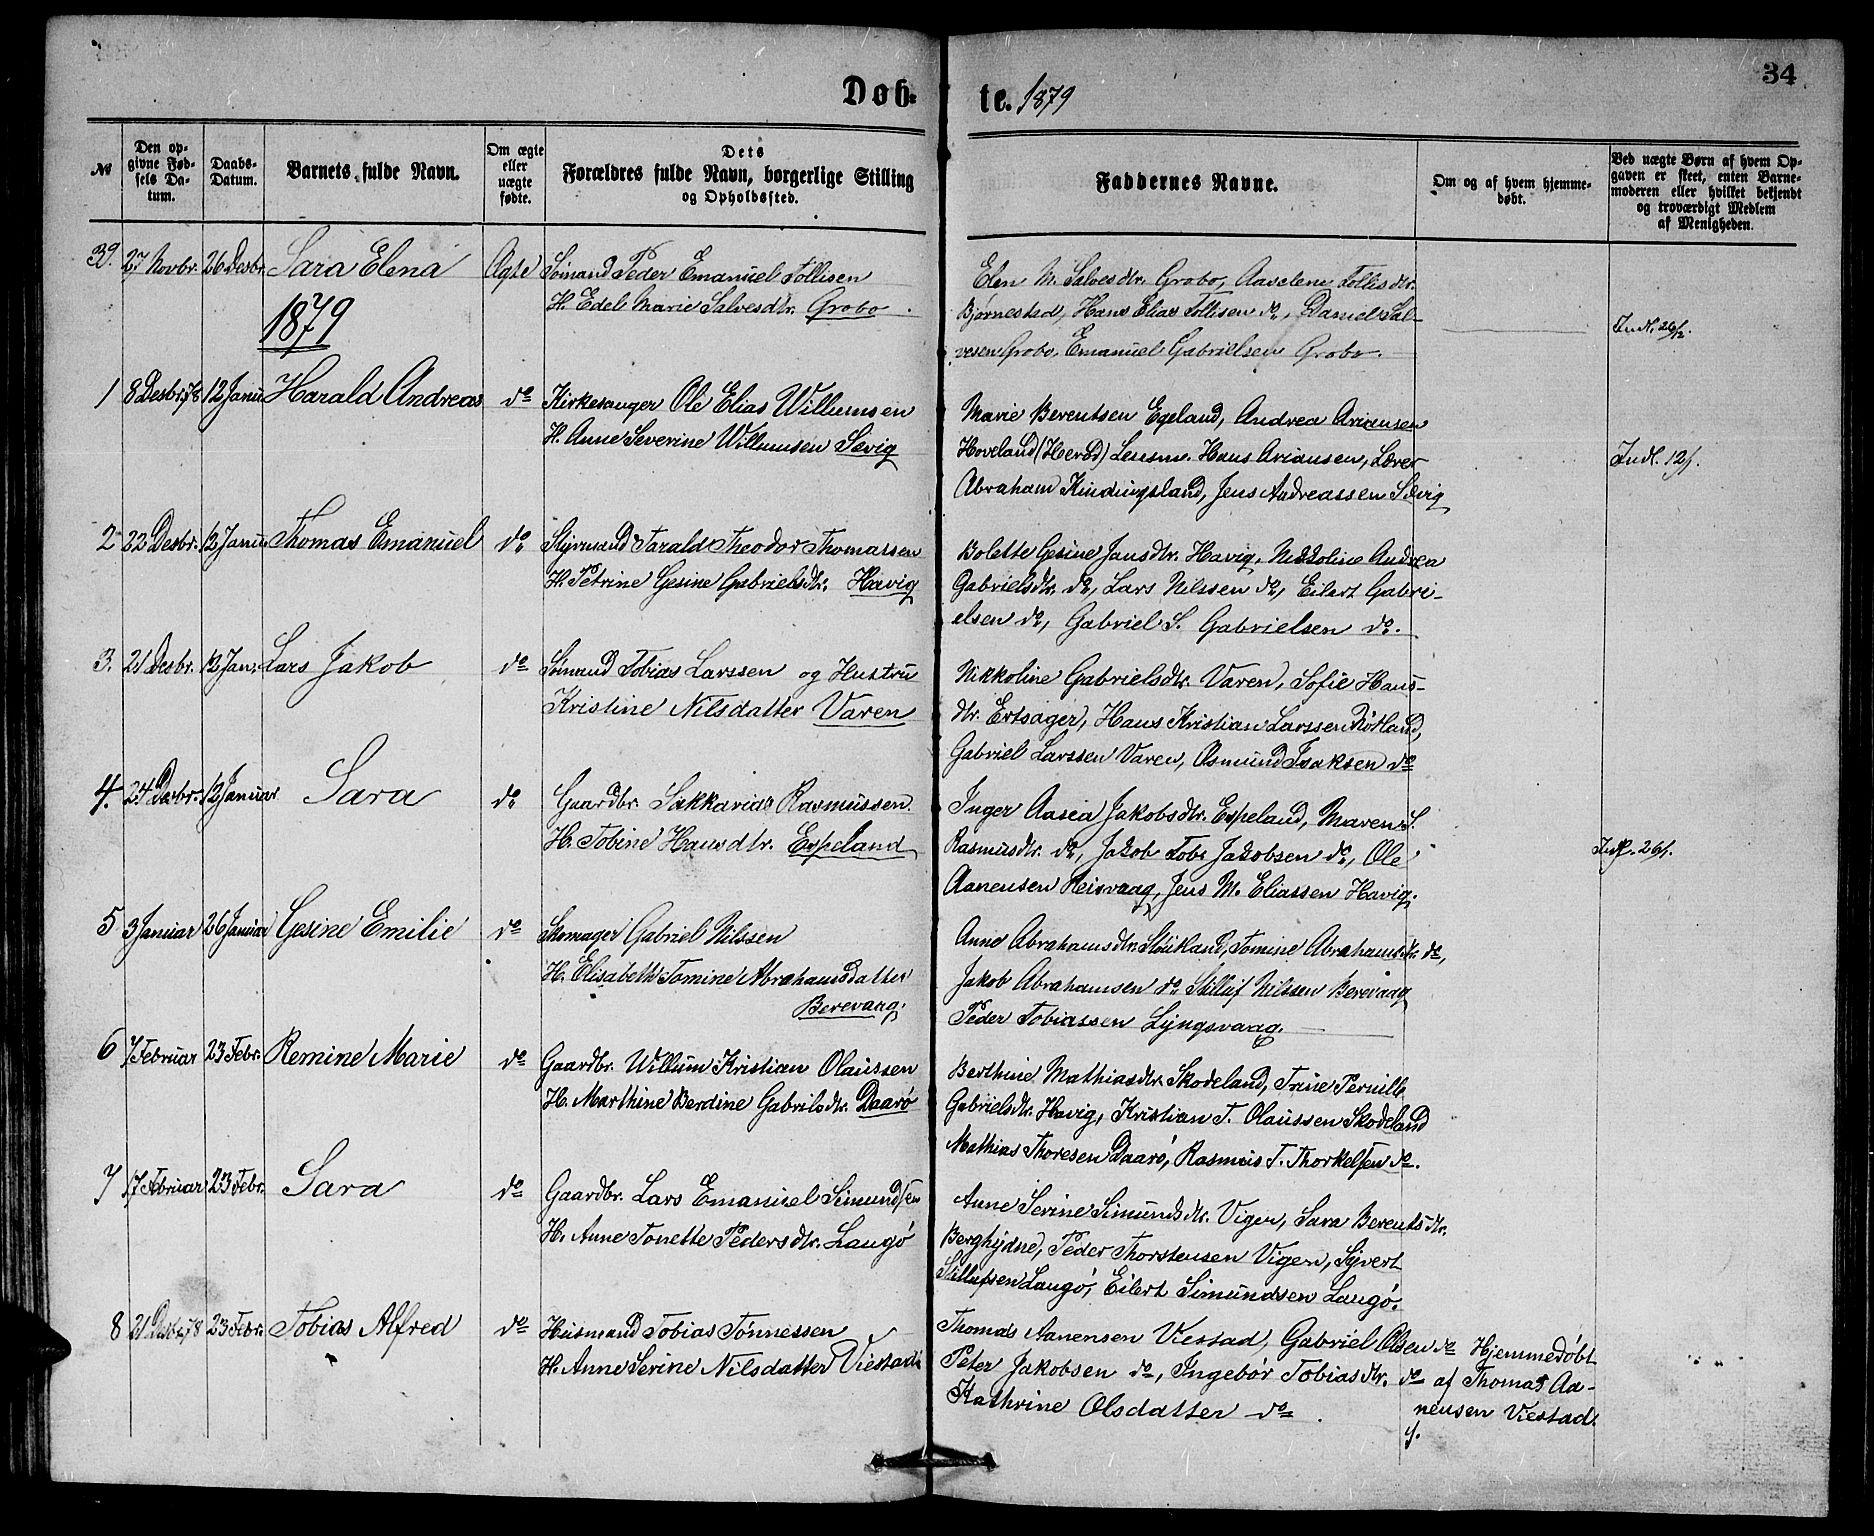 34
Døb- te. 1879
№
Den opgivne Fødsels Datum.
Daabs-Datum.
Barnets fulde Navn.
Om ægte eller uægte fødte.
Dets Forældres fulde Navn, borgerlige Stilling og Opholdssted.
Faddernes Navne.
Om og af hvem hjemmedøbt.
Ved uægte Børn af hvem Opgaven er skeet, enten Barnemoderen eller hvilket bekjendt og troværdigt Medlem af Menigheden.
39. 27 Novbr. 26 Desbr. Sara Elena Ægte Sømand Peder Emanuel Tollisen
H. Edel Marie Salvesdtr. Grobo.
Elen M. Salvesdtr. Grobo, Aaselene Tollisdtr.
Bjørnestad, Hans Elias Tollisen do, Daniel Sal-
vesen Grobo, Emanuel Gabrielsen Grobo.
Indl. 26/2.
1879
1 8 Desbr. 78 12 Janu Harald Andreas do Kirkesanger Ole Elias Willumsen
H. Anne Severine Willumsen Sævig
Marie Berentsen Egeland, Andrea Ariansen
Hoveland (Herad) Lensm. Hans Ariansen, Lærer
Abraham Kindingsland, Jens Andreassen Sævig
Indl. 12/1.
2 22 Desbr. 12 Janu. Thomas Emanuel do Styrmand Tarald Theodor Thomassen
H. Petrine Gesine Gabrielsdtr. Havig
Bolette Gesine Jansdtr. Havig, Nikkoline Andrea
Gabrielsdtr. do, Lars Nilssen do, Eilert Gabri-
elsen do, Gabriel S. Gabrielsen do.
3. 21 Desbr. 12 Jan. Lars Jakob do Sømand Tobias Larssen og Hustru
Kristine Nilsdatter Varen
Nikkoline Gabrielsdtr. Varen, Sofie Hans-
dtr. Ertsager, Hans Kristian Larssen Røtland,
Gabriel Larssen Varen, Osmund Isaksen do
4. 24 Desbr. 12 Januar Sara do Gaardbr. Sakkarias Rasmussen
H. Tobine Hansdtr. Espeland
Inger Aasea Jakobsdtr. Espeland, Maren S.
Rasmusdtr. do, Jakob Tobs Jakobsen do, Ole
Aanensen Reisvaag, Jens M. Eliassen Havig.
Indl. 26/1.
5 3 Januar 26 Januar Gesine Emilie do Skomager Gabriel Nilssen
H. Elisabeth Tomine Abrahamsdatter
Berevaag.
Anne Abrahamsdtr. Støkland, Tomine Abrahamsdtr. do,
Jakob Abrahamsen do Stilluf Nilssen Berevaag
Peder Tobiassen Lyngsvaag.
6 7 Februar 23 Febr. Remine Marie do Gaardbr. Willum Kristian Olaussen
H. Marthine Berdine Gabrilsdtr. Daarø
Berthine Mathiasdtr. Skodeland, Trine Pernille
Gabrielsdtr. Havig, Kristian T. Olaussen Skodeland
Mathias Thoresen Daarø, Rasmus T. Thorkelsen do.
7 17 Februar 23 Febr. Sara do Gaardbr. Lars Emanuel Simundsen
H. Anne Tonette Pedersdtr. Langø
Anne Serine Simundsdtr. Vigen, Sara Berentsdtr.
Berghydne, Peder Thorstensen Vigen, Syvert
Stillufsen Langø, Eilert Simundsen Langø.
8 21 78 23 Febr. Tobias Alfred do Husmand Tobias Tønnessen
H. Anne Serine Nilsdatter Viestad
Thomas Aanensen Viestad, Gabriel Olsen do
Peter Jakobsen do, Ingebør Tobiasdtr. do
Kathrine Olsdatter do.
Hjemmedøbt
af Thomas Aa-
nensen Viestad.